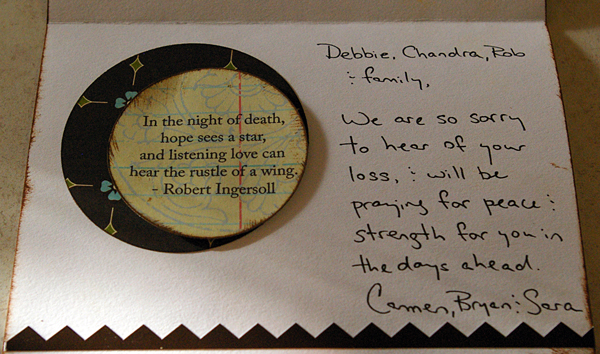 In the night of death,
hope sees a star,
and listening love can
hear the rustle of a wing.
- Robert Ingersoll
Debbie, Chandra, Rob
& family,
We are so sorry
to hear of your
loss, & will be
praying for peace &
strength for you in
the days ahead.
Carmen, Bryan & Sara